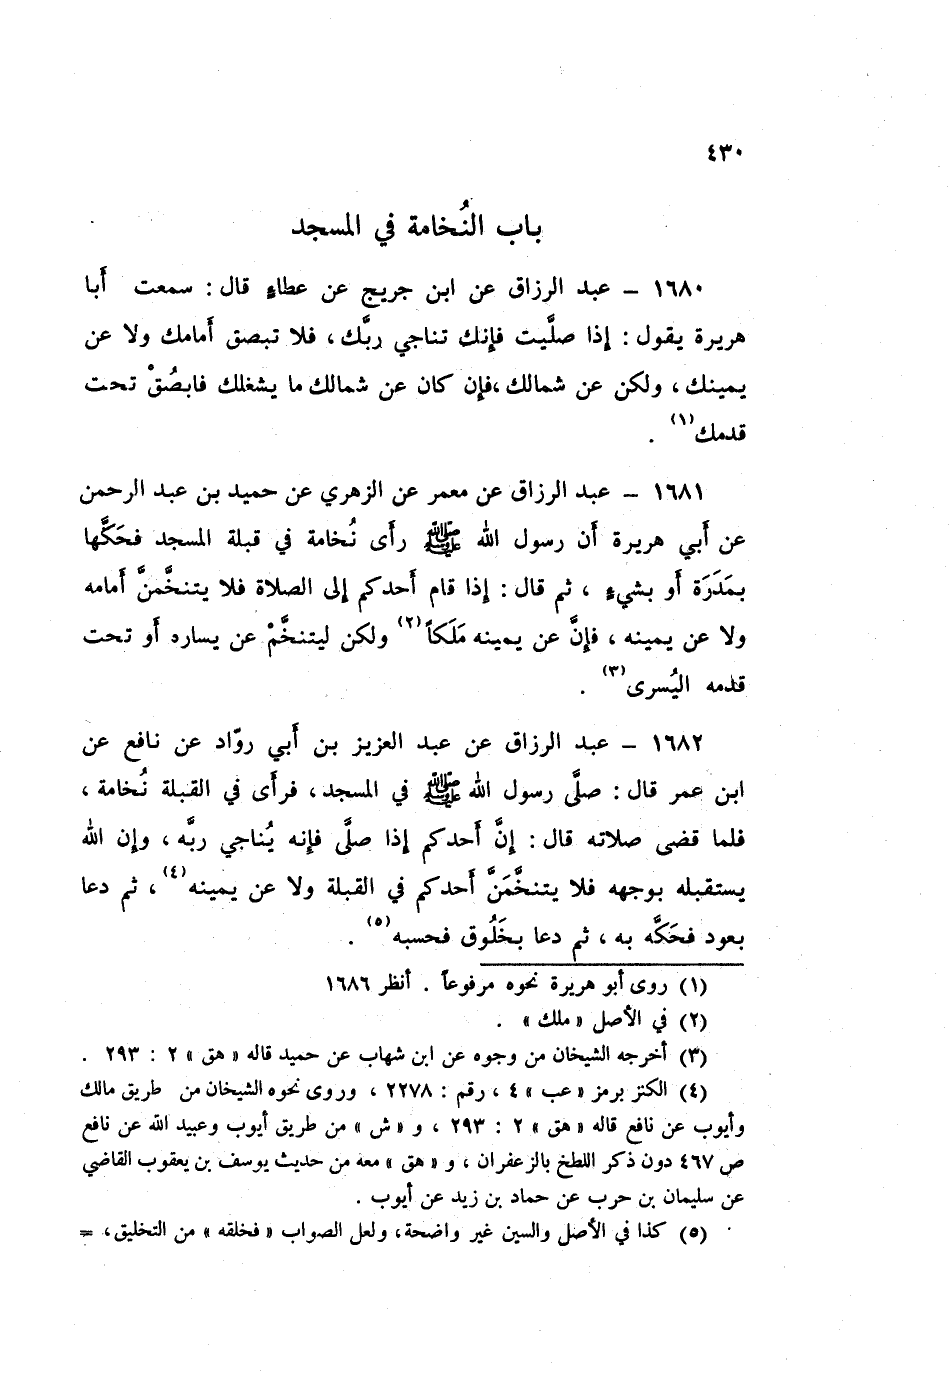 ٤٣٠
باب النُخامة في المسجد
١٦٨٠ – عبد الرزاق عن ابن جريج عن عطاءٍ قال : سمعت أَبا
هريرة يقول : إذا صلَّيت فإنك تناجي ربَّك ، فلا تبصق أَمامك ولا عن
يمينك ، ولكن عن شمالك ،فإن كان عن شمالك ما يشغلك فابصُقْ تحت
قدمك(١) .
١٦٨١ – عبد الرزاق عن معمر عن الزهري عن حميد بن عبد الرحمن
عن أَبي هريرة أن رسول الله ﷺ رأَى نُخامة في قبلة المسجد فحَكَّها
بمَدَرَة أَو بشيءٍ ، ثم قال : إذا قام أَحدكم إلى الصلاة فلا يتنخَّمنَّ أَمامه
ولا عن يمينه ، فإنَّ عن يمينه مَلَكاً(٢) ولكن ليتنخَّمْ عن يساره أَو تحت
قدمه اليُسرى(٣) .
١٦٨٢ – عبد الرزاق عن عبد العزيز بن أَبي روّاد عن نافع عن
ابن عمر قال : صلَّى رسول الله ﷺ في المسجد ، فرأَى في القبلة نُخامة ،
فلما قضى صلاته قال : إنَّ أَحدكم إذا صلَّى فإنه يُناجي ربَّه ، وإن الله
يستقبله بوجهه فلا يتنخَّمَنَّ أَحدكم في القبلة ولا عن يمينه(٤) ، ثم دعا
بعود فحَكَّه به ، ثم دعا بخَلُوق فحسبه(٥) .
(١) روى أبو هريرة نحوه مرفوعاً . أنظر ١٦٨٦
(٢) في الأصل « ملك » .
(٣) أخرجه الشيخان من وجوه عن ابن شهاب عن حميد قاله « هق » ٢ : ٢٩٣ .
(٤) الكنز برمز « عب » ٤ ، رقم : ٢٢٧٨ ، وروى نحوه الشيخان من طريق مالك
وأيوب عن نافع قاله « هق » ٢ : ٢٩٣ ، و « ش » من طريق أيوب وعبيد الله عن نافع
ص ٤٦٧ دون ذكر اللطخ بالزعفران ، و « هق » معه من حديث يوسف بن يعقوب القاضي
عن سليمان بن حرب عن حماد بن زيد عن أيوب .
(٥) كذا في الأصل والسين غير واضحة ، ولعل الصواب « فخلقه » من التخليق ، =